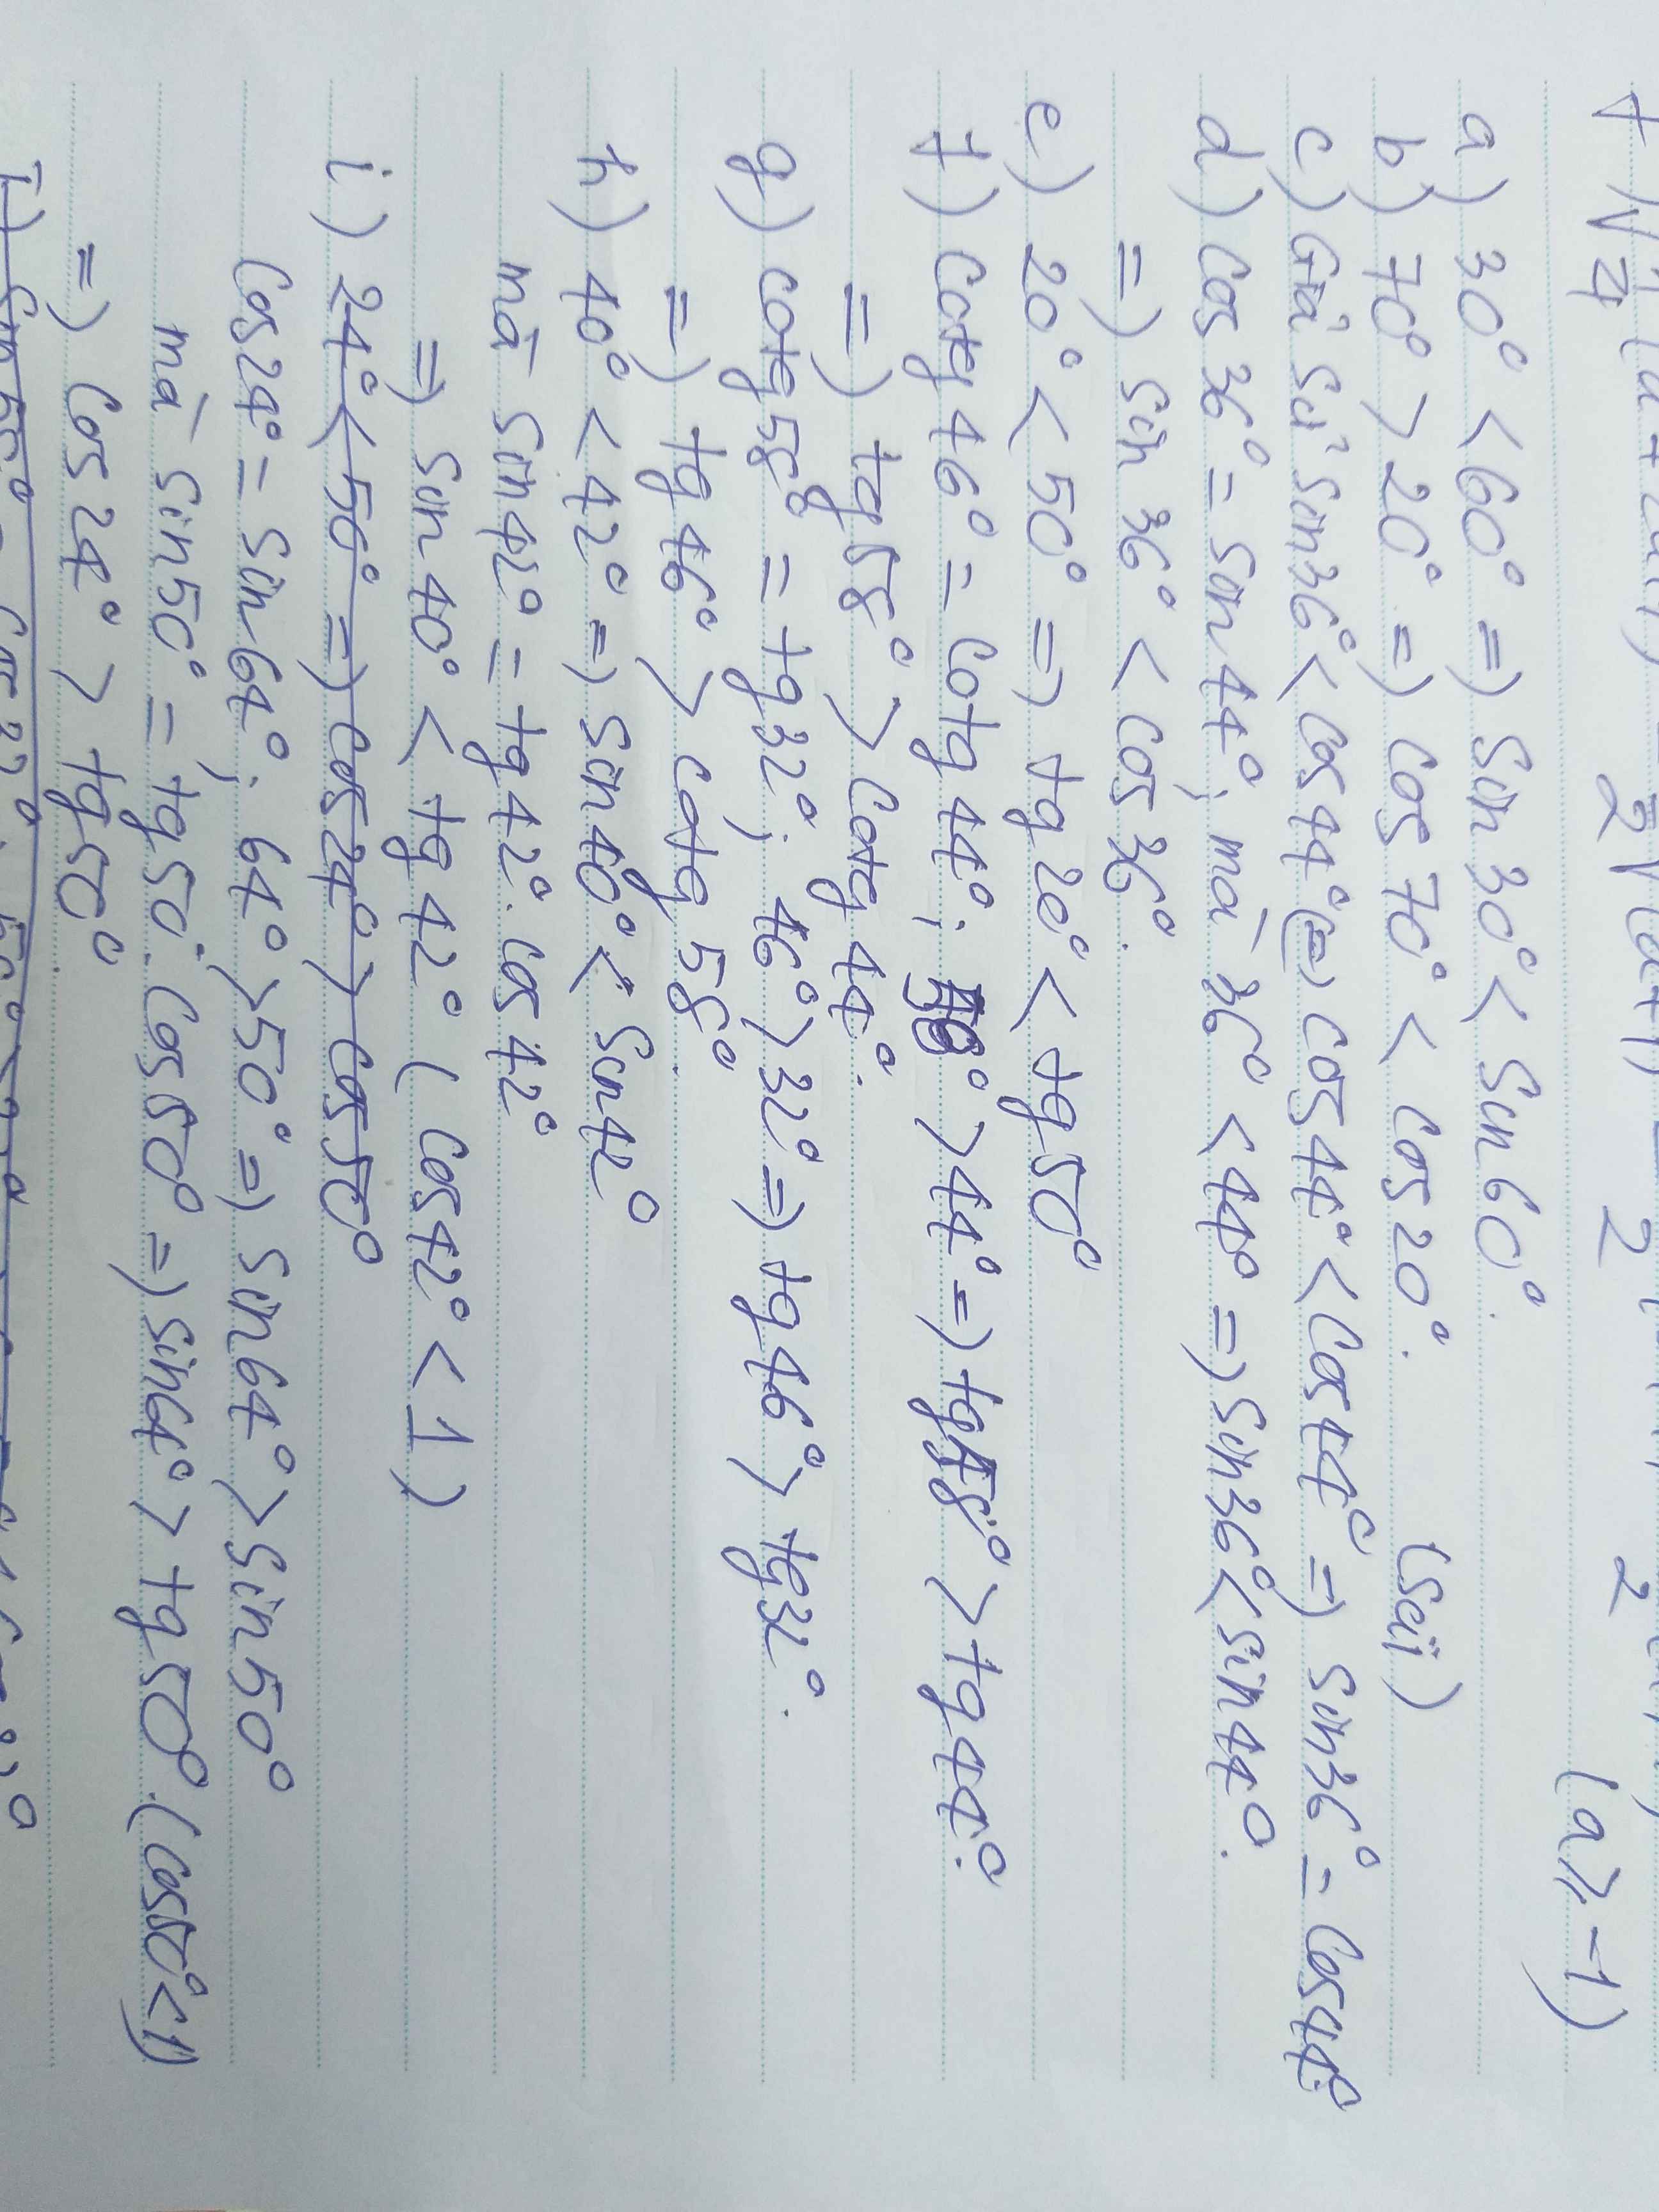 a) 30° < 60° => sin 30° < sin 60°.
b) 70° > 20° => cos 70° < cos 20°.
(sai)
c) Giả sử sin36° < cos44° (=) cos44° < cos44° => sin36° = cos44°
d) cos 36° = sin 44°; mà 36° < 44° => sin36° < sin44°.
=> sin 36° < cos 36°.
e) 20° < 50° => tg 20° < tg 50°
f) cotg 46° = cotg 44°; 58° > 44° => tg 58° > tg 44°.
=> tg 58° > cotg 44°.
g) cotg 58° = tg 32°; 46° > 32° => tg 46° > tg 32°.
=> tg 46° > cotg 58°.
h) 40° < 42° => sin 40° < sin 42°
mà sin 42° = tg 42°. cos 42°
=> sin 40° < tg 42° ( cos 42° < 1 )
i) 24° < 50° => cos 24° > cos 50°
cos 24° = sin 64°; 64° > 50° => sin 64° > sin 50°
mà sin 50° = tg 50°. cos 50° => sin 64° > tg 50°. (cos 50° < 1)
=> cos 24° > tg 50°
(a ≥ -1)